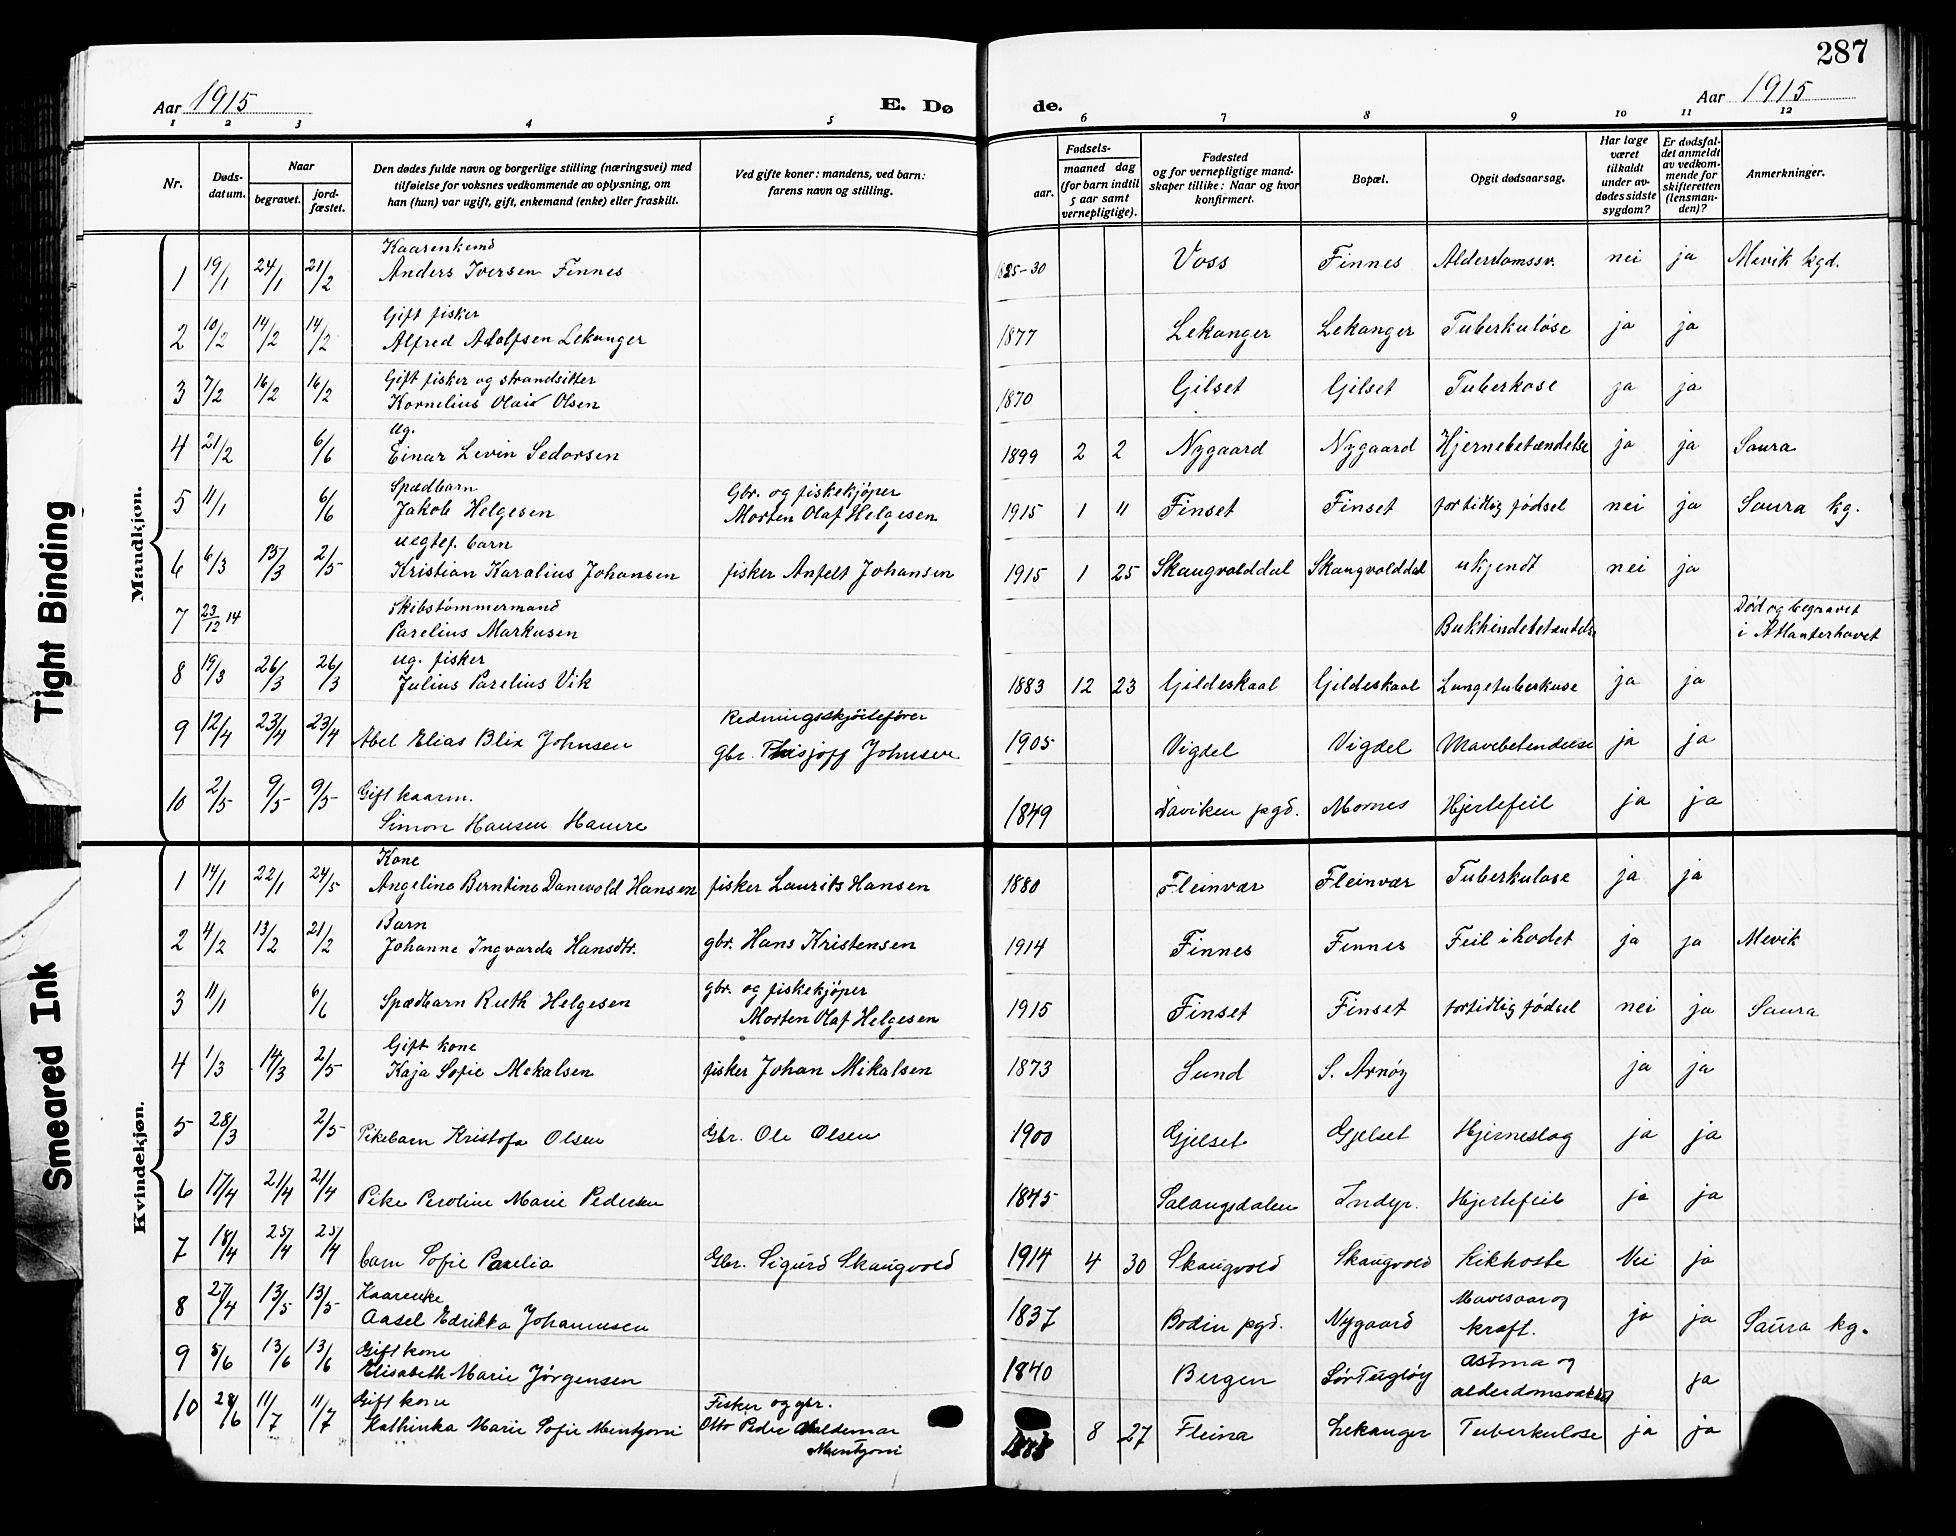 287
Aar 1915
E. Dø
de.
Aar 1915
1 2 3 4 5 6 7 8 9 10 11 12
Nr.
Døds-
datum.
Naar
begravet.
jord-
fæstet.
Den dødes fulde navn og borgerlige stilling (næringsvei) med
tilføielse for voksnes vedkommende av oplysning, om
han (hun) var ugift, gift, enkemand (enke) eller fraskilt.
Ved gifte koner: mandens, ved barn:
farens navn og stilling.
Fødsels-
aar.
maaned dag
(for barn indtil
5 aar samt
vernepligtige).
Fødested
og for vernepligtige mand-
skaper tillike: Naar og hvor
konfirmert.
Bopæl.
Opgit dødsaarsag.
Har læge
været
tilkaldt
under av-
dødes sidste
sygdom?
Er dødsfal-
det anmeldt
av vedkom-
mende for
skifteretten
(lensman-
den)?
Anmerkninger.
Tight Binding
Smeared Ink
Mandkjøn.
Kaarenkemd
1 19/1 24/1 21/2 Anders Iversen Finnes 1825-30 Voss Finnes Alderdomssv. nei ja Mevik kgd.
Gift fisker
2 10/2 14/2 14/2 Alfred Adolfsen Lekanger 1877 Lekanger Lekanger Tuberkuløse ja ja
Gift fisker og strandsitter
3 7/2 16/2 16/2 Kornelius Olai Olsen 1870 Gilset Gilset Tuberkose ja ja
ug.
4 21/2 6/6 Einar Levin Sedorsen 1899 2 2 Nygaard Nygaard Hjernebetændelse ja ja Saura
Spædbarn Gbr. og fiskekjøper
5 11/1 6/6 Jakob Helgesen Morten Olaf Helgesen 1915 1 11 Finset Finset for tidlig fødsel nei ja Saura kg.
uegtef. barn
6 6/3 15/3 2/5 Kristian Karolius Johansen fisker Anfelt Johansen 1915 1 25 Skaugvolddal Skaugvolddal ukjendt nei ja
Skibstømmermand Død og begravet
7 23/12 14 Parelius Markusen Bukhindebetændelse i Atlanterhavet
ug. fisker
8 19/3 26/3 26/3 Julius Parelius Vik 1883 12 23 Gildeskaal Gildeskaal Lungetuberkuse ja ja
Redningsskjøitefører
9 12/4 23/4 23/4 Abel Elias Blix Johnsen Gbr. Johnsen 1905 Vigdel Vigdel Mavebetendelse ja ja
Gift kaarm.
10 2/5 9/5 9/5 Simon Hansen Hamre 1849 Daviken pgd. Mornes Hjertefeil ja ja
Kvindekjøn.
Kone
1 14/1 22/1 24/5 Angelina Berntine Danevold Hansen fisker Laurits Hansen 1880 Fleinvær Fleinvær Tuberkulose ja ja
Barn
2 4/2 13/2 21/2 Johanne Ingvarda Hansdtr. gbr. Hans Kristensen 1914 Finnes Finnes Feil i hodet ja ja Mevik
gbr. og fiskekjøper
3 11/1 6/6 Spædbarn Ruth Helgesen Morten Olaf Helgesen 1915 Finset Finset for tidlig fødsel nei ja Saura
Gift kone
4 1/3 14/3 2/5 Kaja Sofie Mikalsen fisker Johan Mikalsen 1873 Sund S. Arnøy ja ja
5 28/3 2/5 Pikebarn Kristofa Olsen Gbr. Ole Olsen 1900 Gjelset Gjelset Hjerneslag ja ja
6 17/4 21/4 21/4 Pike Peroline Marie Pedersen 1845 Salangsdalen Indyr. Hjertefeil ja ja
7 18/4 25/4 25/4 barn Sofie Parelia Gbr. Sigurd Skaugvold 1914 4 30 Skaugvold Skaugvold Kikhoste Nei ja
Kaarenke Mavesaar og
8 27/4 13/5 13/5 Aasel Edrikka Johannesen 1837 Bodin pgd. Nygaard kræft. ja ja Saura kg.
Gift kone Astma og
9 5/6 13/6 13/6 Elisabeth Marie Jørgensen 1840 Bergen Sør Fugløy alderdomsvakhet ja
Gift kone Fisker og gbr.
10 28/6 11/7 11/7 Kathinka Marie Sofie Mentzoni Otto Peder Valdemar 8 27 Fleina Lekanger Tuberkulose ja ja
Mentzoni